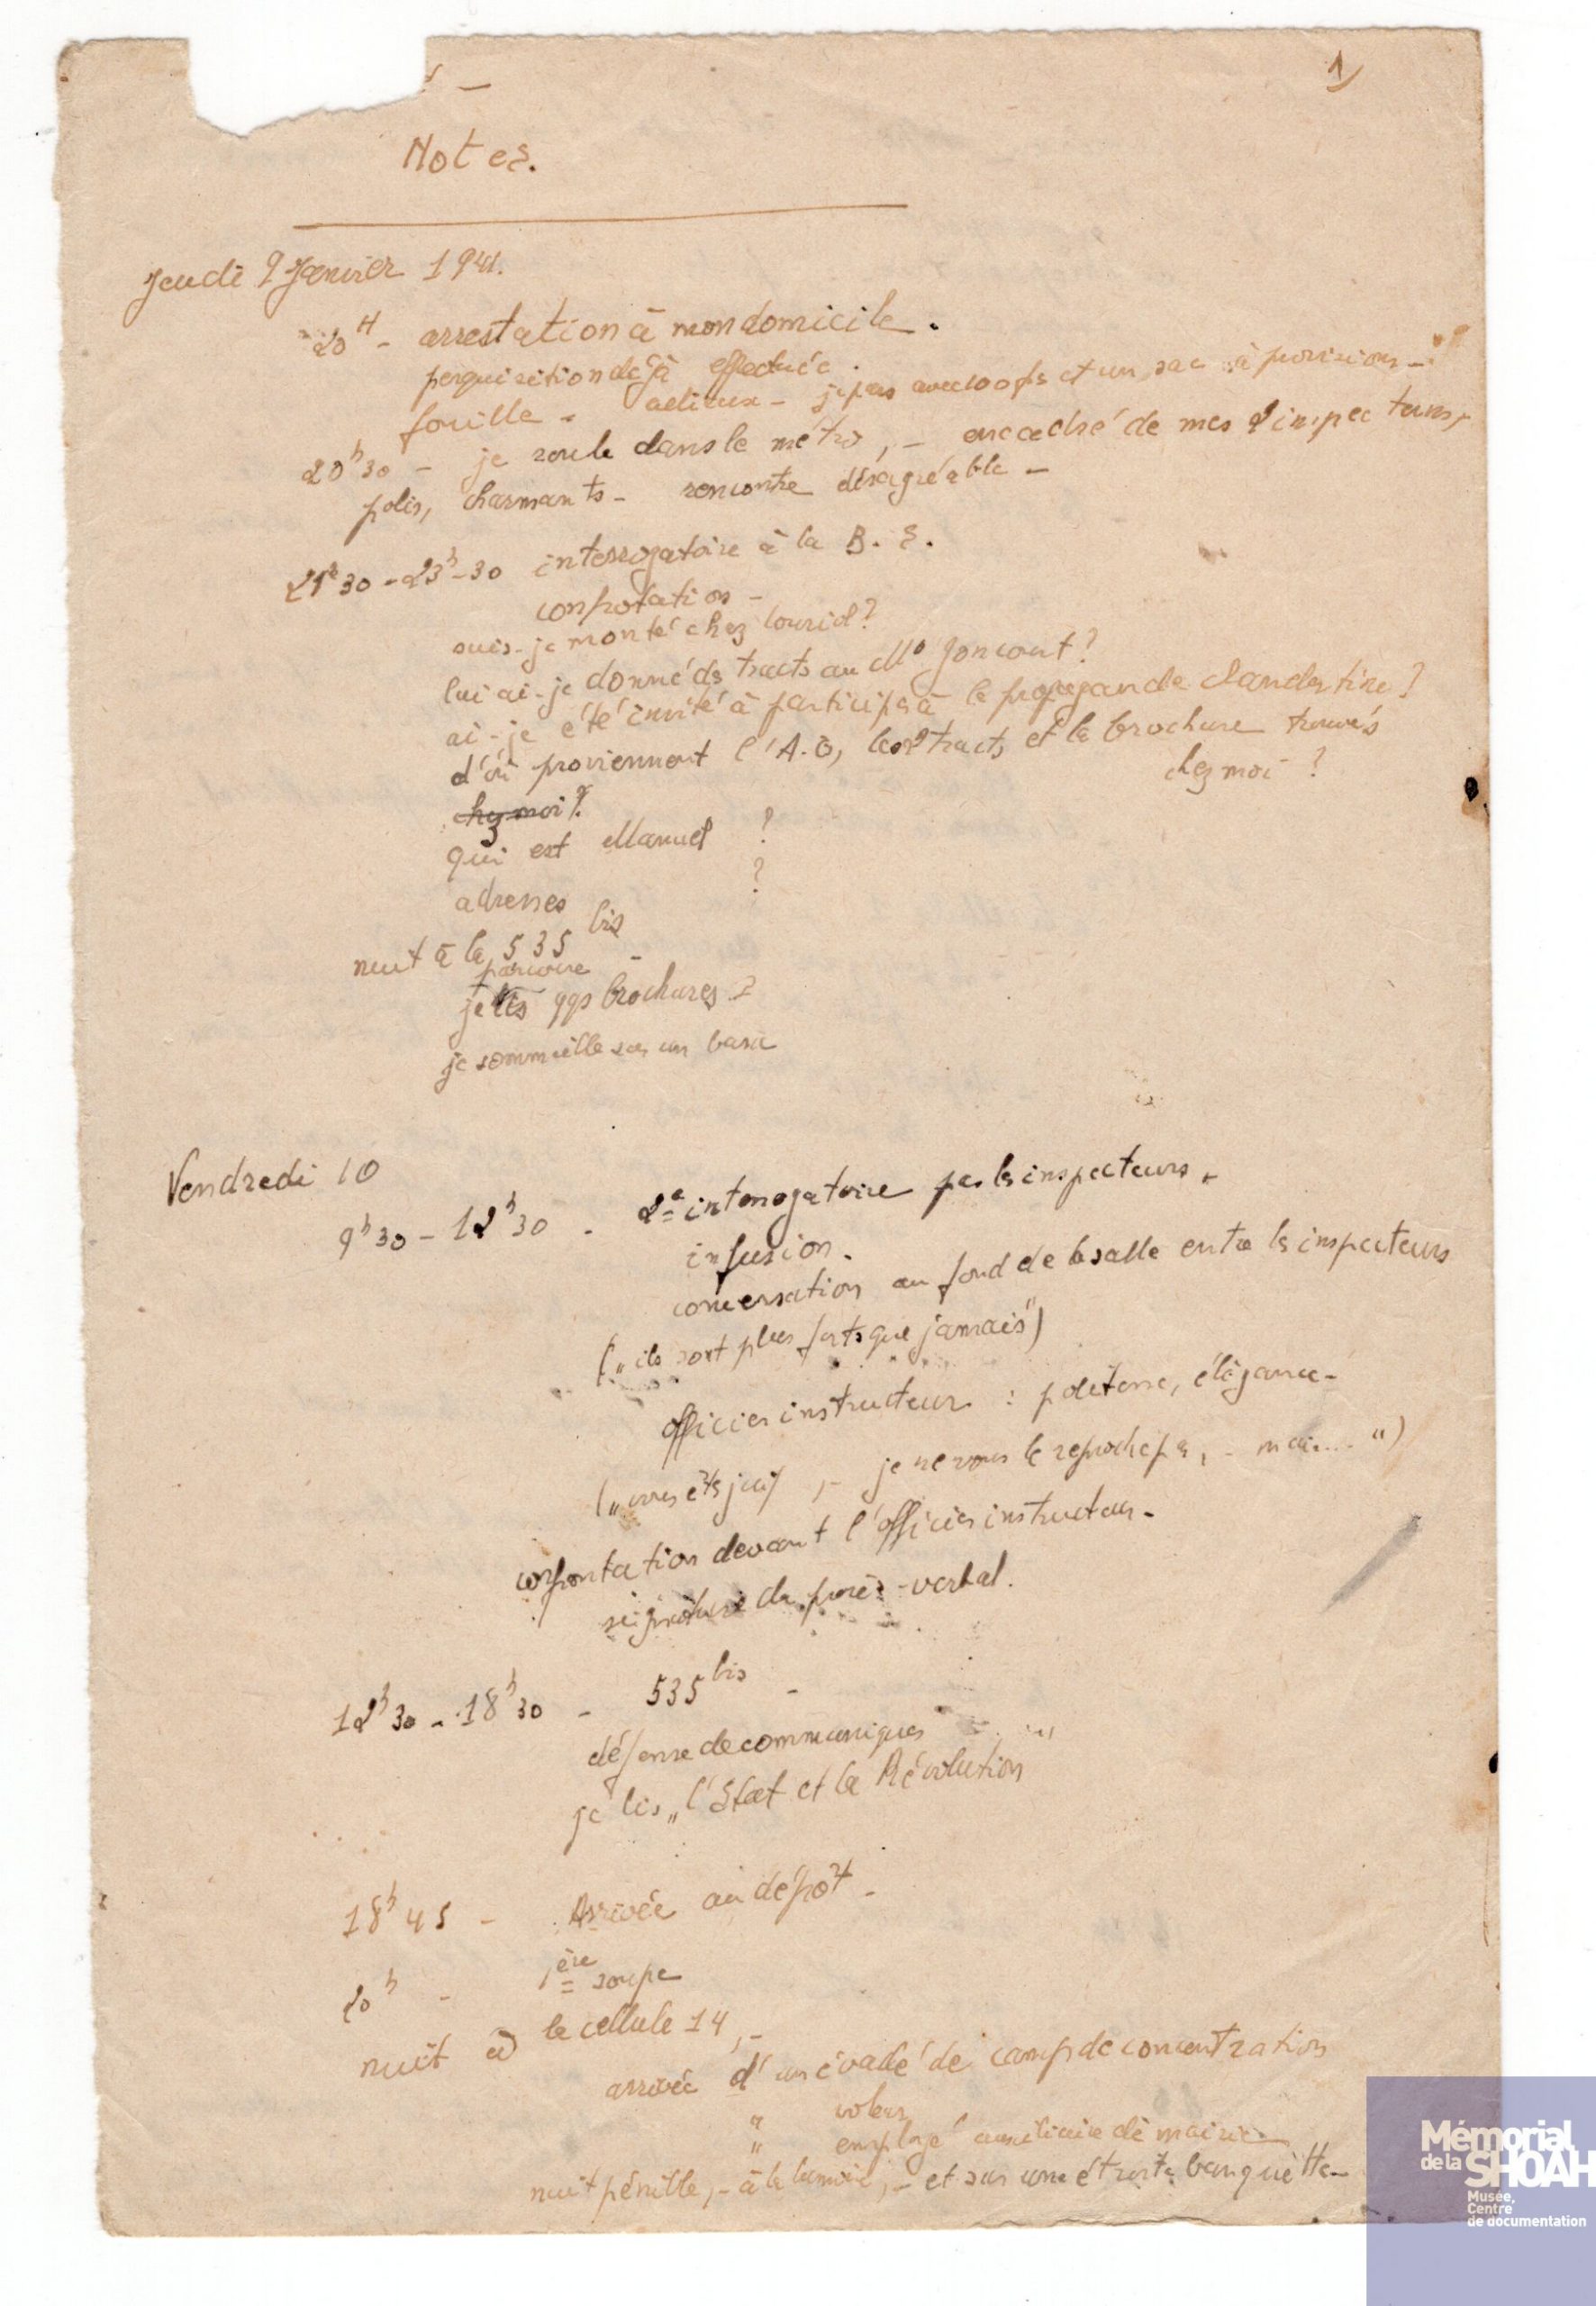 1)
Notes.
Jeudi 9 Janvier 1941.
20H - arrestation à mon domicile.
perquisition déjà effectuée.
fouille - adieux - je pars avec 100 frs et un sac à provisions -
20h30 - je roule dans le métro, - encadré de mes 2 inspecteurs,
polis, charmants - rencontre désagréable -
21h30 - 23h-30 interrogatoire à la B. S.
confrotation -
suis-je monté chez ?
lui ai-je donné ds tracts au Mo Goncourt ?
ai-je été invité à participer à la propagande clandestine ?
d'où proviennent l'A.O, les 2 tracts et la brochure trouvés
chez moi ?
chez moi ?
qui est Manuel ?
adresses ?
nuit à la 535 bis -
parcoure
je lis qqs brochures
je sommeille sur un banc
Vendredi 10
9h30 - 12h30 - 2e interrogatoire par les inspecteurs.
infusion.
conversation au fond de la salle entre ls inspecteurs
(„ils sont plus forts que jamais")
officier instructeur : politesse, élégance -
(„vous êts juif, - je ne vous le reproche pas, - mais.... ")
confrontation devant l'officier instructeur -
signature du procès-verbal.
12h30 - 18h30 - 535 bis -
défense de communiquer
je lis „l'Etat et la Révolution"
18h45 - Arrivée au dépôt -
20h - 1ère soupe
nuit à la cellule 14, -
arrivée d'un évadé de camp de concentration
" voleur
" employé auxiliaire de mairie
nuit pénible, - à la lumière, - et sur une étroite banquette -
Mémorial
de la SHOAH
Musée,
Centre
de documentation